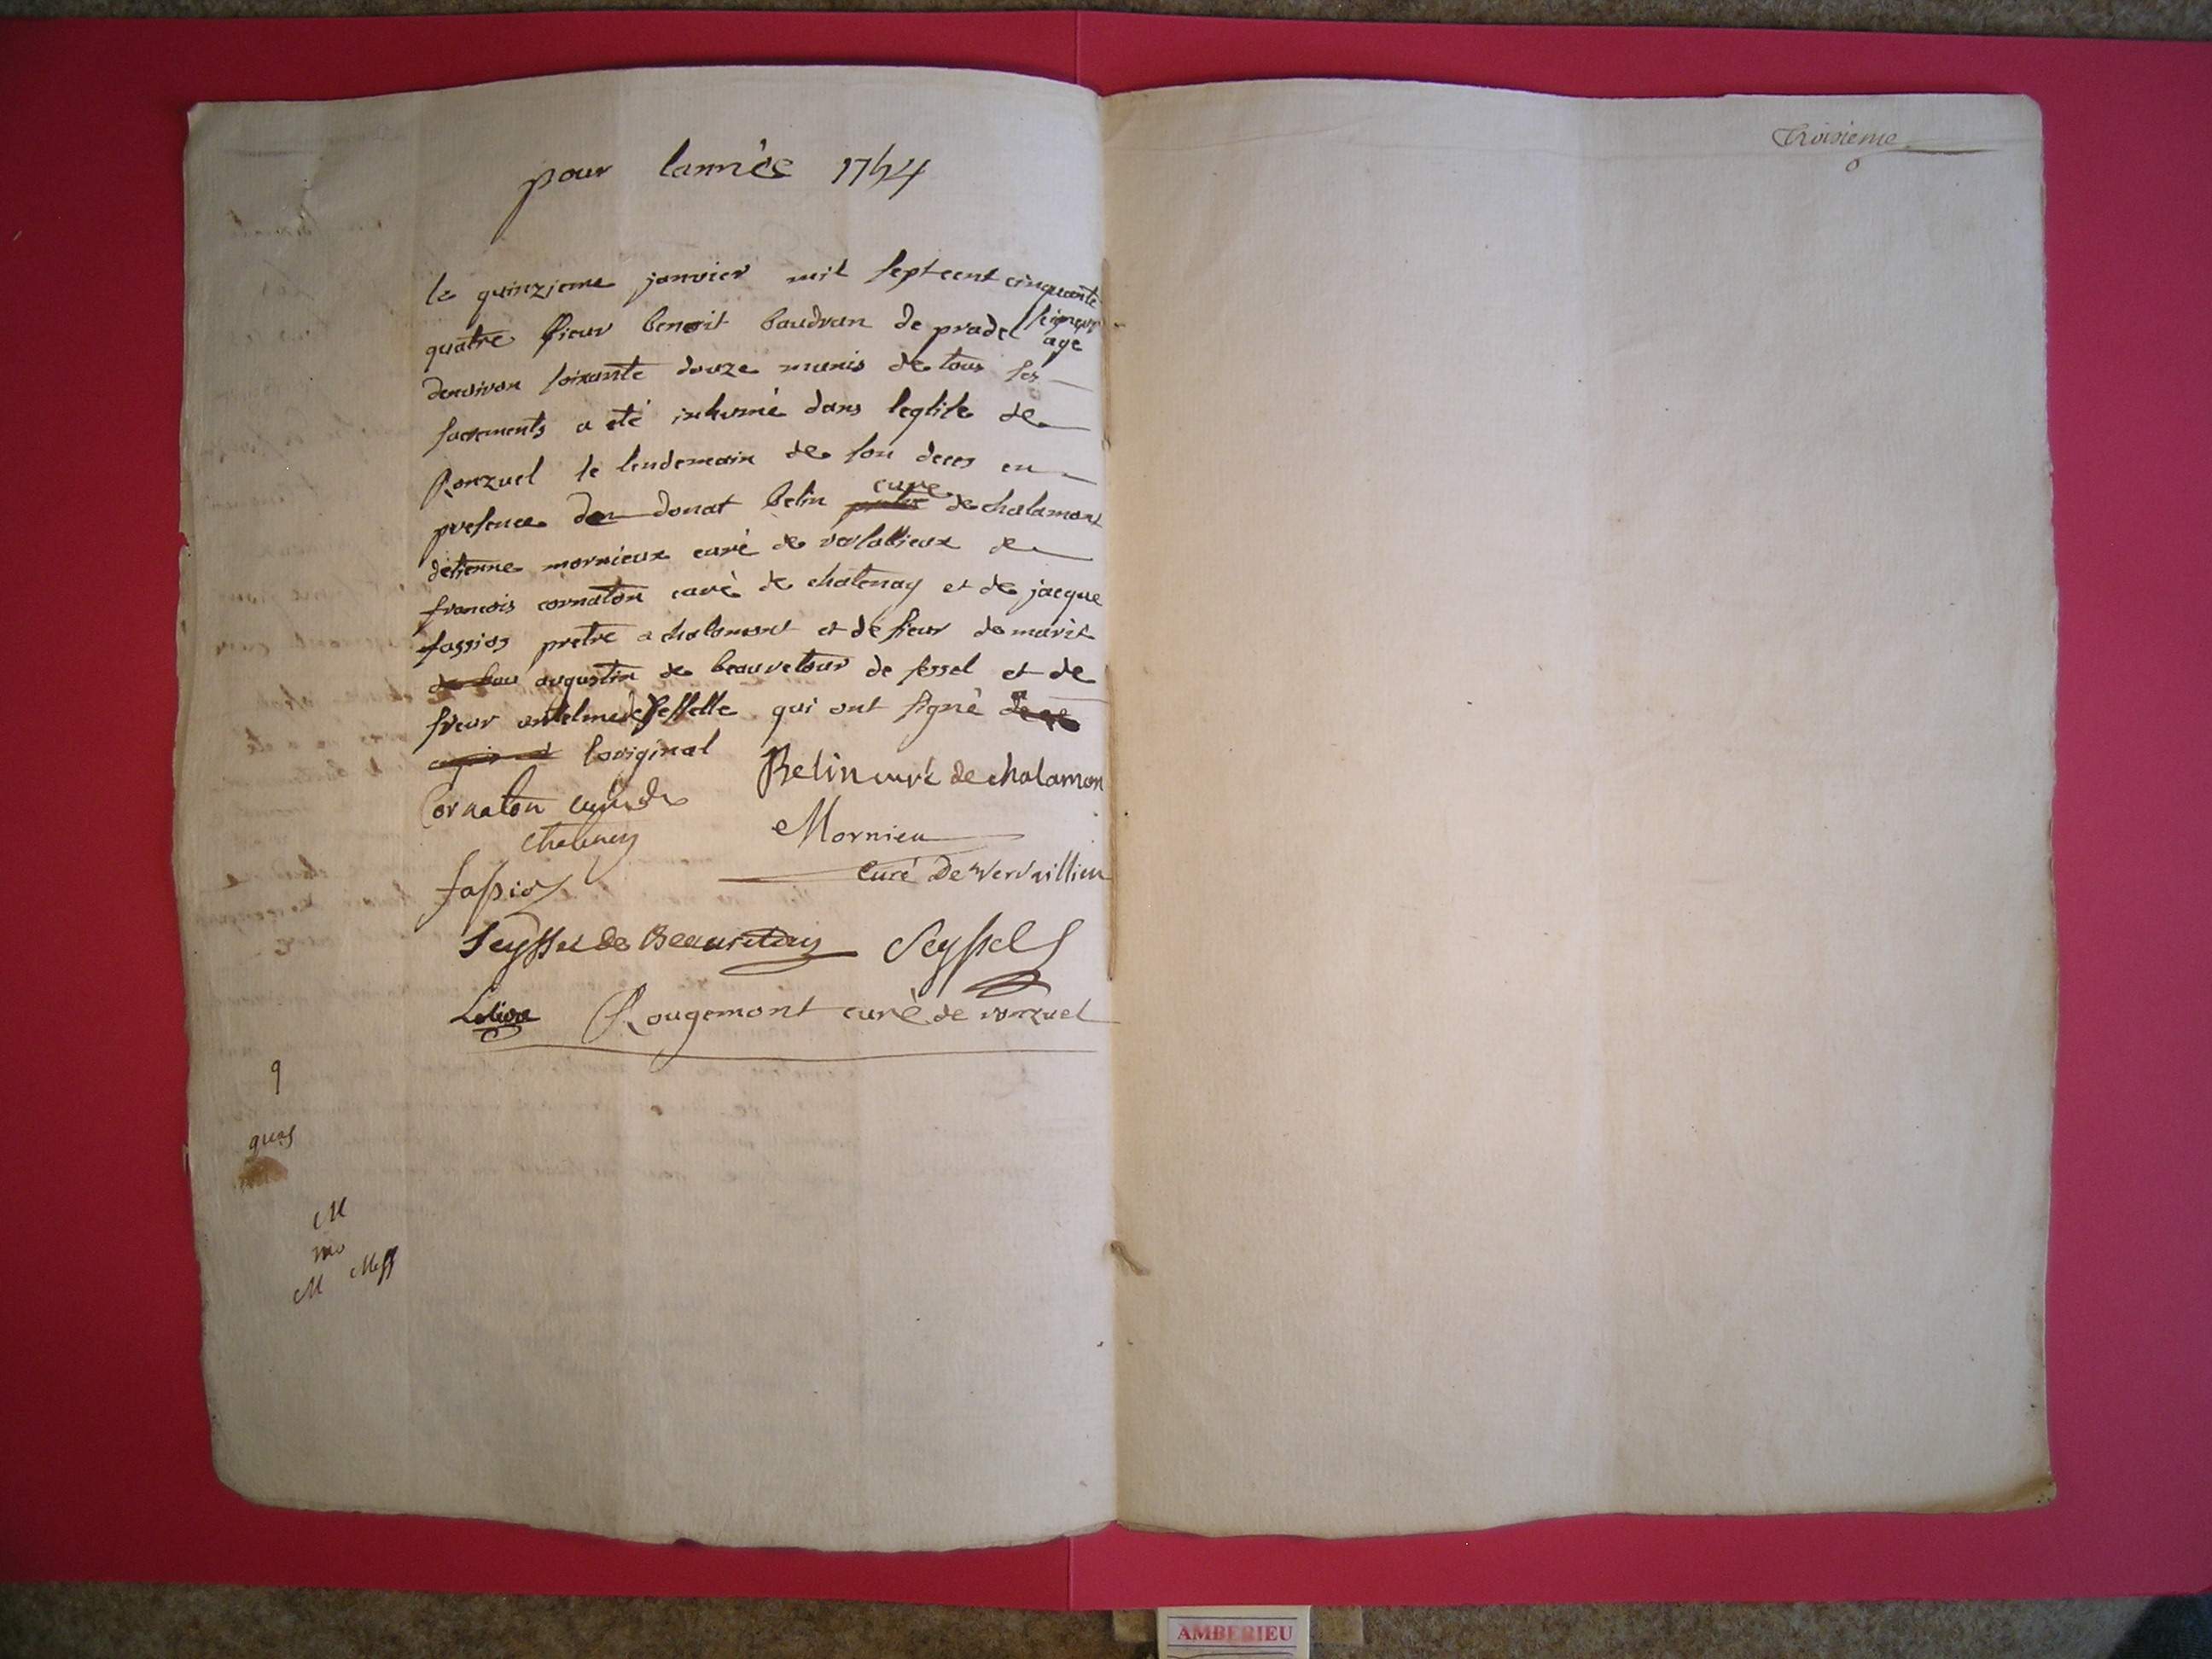 pour lannèe 1754
le quinzieme janvier mil sept cent cinquante
quatre sieur benoit baudran de pradel seigneur
agé
denviron soixante douze munis de tous ses
sacrements a eté inhumé dans leglise de
Ronzuel le lendemain de son deces en
presence de donat belin curé de chalamont
detienne mornieux curé de versallieux de
francois cornaton curé de chatenay et de jacque
fassios pretre a chalamont et de sieur de marit
augustin de beauretour de sessel et de
sieur antelme de sesselle qui ont signé
loriginal
Belin curé de chalamon
Cornaton curé de
chatenay
Mornieu
curé de versaillieu
fassioz
Seyssel de Beauretour Seyssel
Rougemont curè de ronzuel
9
quas
M
mo
M Mess
Troisieme
AMBERIEU